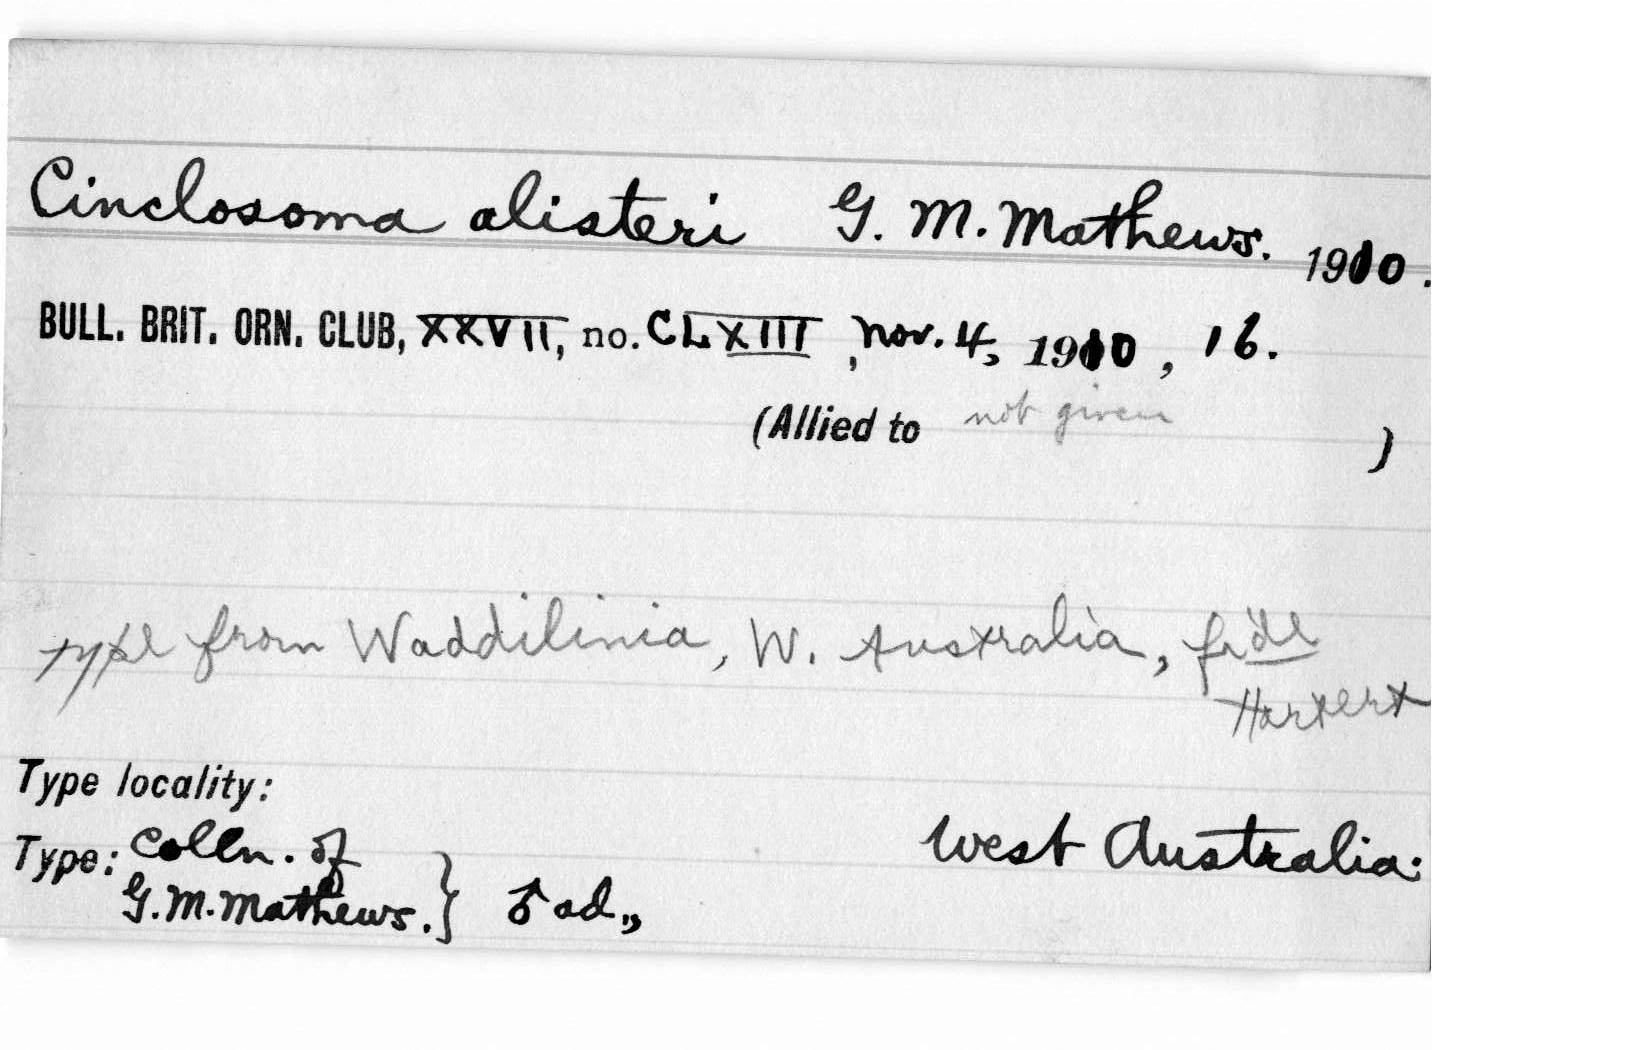 Cinclosoma alisteri G. M. Mathews. 1910.
BULL. BRIT. ORN. CLUB, XXVII, no. CLXIII, Nov. 4, 1910, 16.
(Allied to not given )
Type from Waddilinia, W. Australia, fide
Hartert
Type locality:
West Australia:
Type: Colln. of
G. M. Mathews. } ♂ ad.,